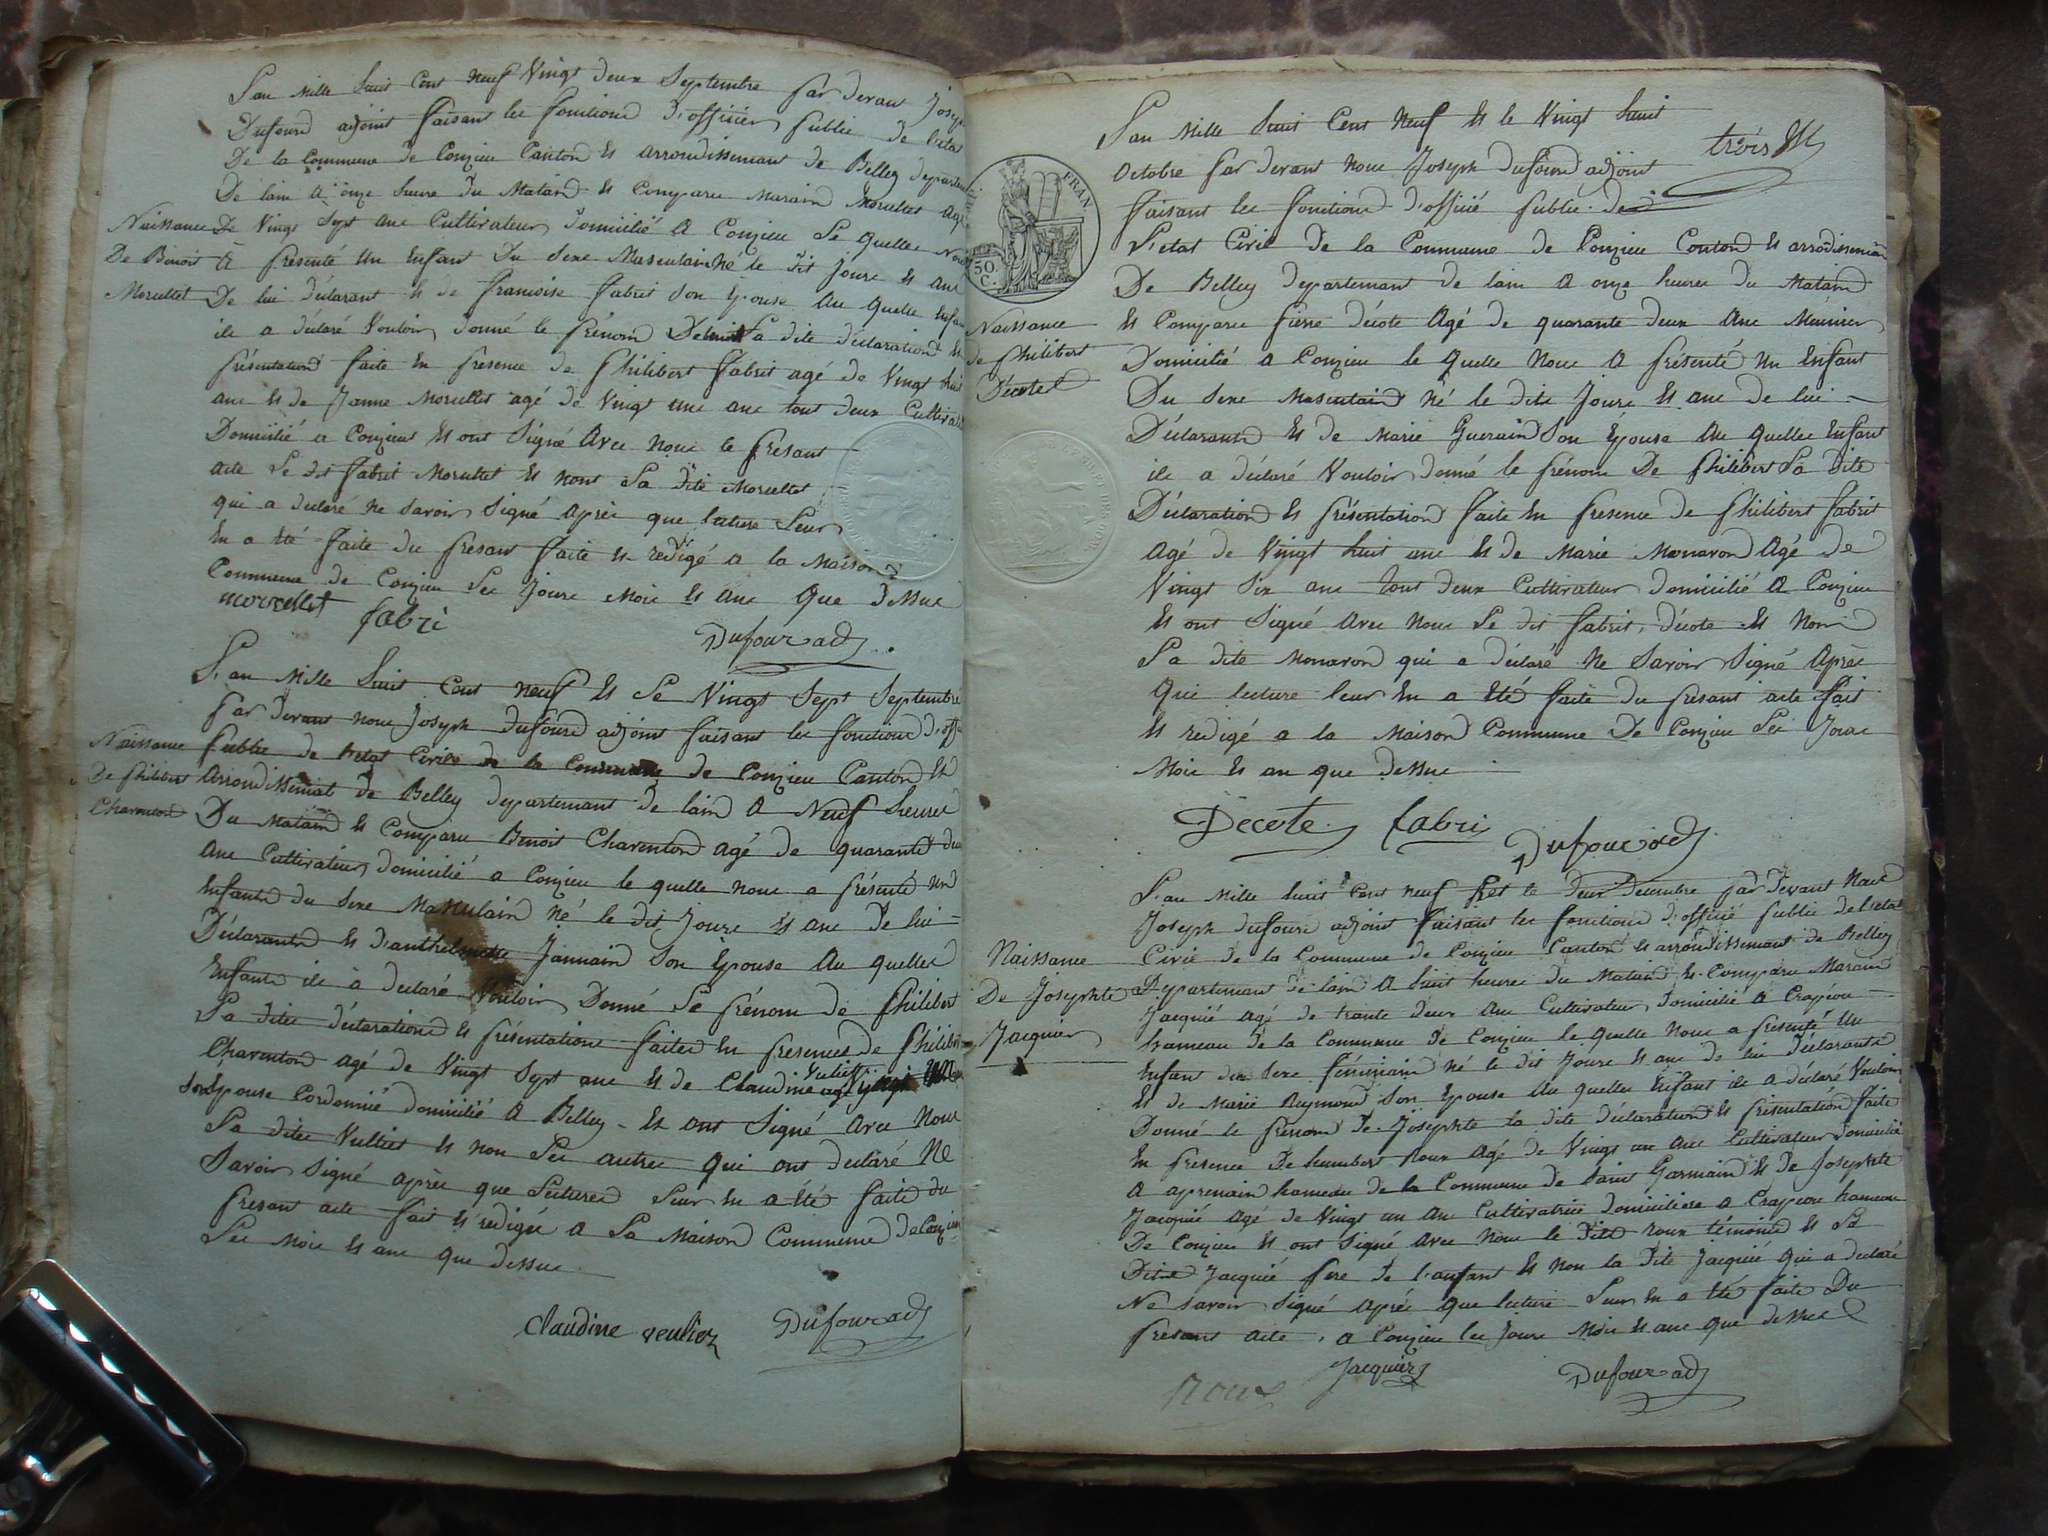 L'an mille huit cent neuf Vingt deux Septembre par devant Joseph
Dufourd adjoint faisant les fonctions d'officier publie de l'etat
De la Commune de Conzieu Canton et arrondissemant de Belley departem
De lain a onze heure du Matain et Comparu Marain Morcellet agé
Naissance
De Benoit
Morcellet
De Vingt Sept ans Cultivateur domicilié a Conzieu Le quelle Nous
a présenté un Enfant Du Sexe Masculain Né le dit jour et ans
De lui declarant et de francoise fabrit Son Epouse Au quelle Enfan
ile a déclaré Vouloir donné le prénom De Benoit La dite déclaration et
présentation faite En présence de philibert fabrit agé de Vingt huit
ans et de Janne Morcellet agé de Vingt une ans tout deux Cultivat
Domicilié a Conzieu et ont Signé Avec nous le presant
acte Le dit fabrit Morcellet et nont La dite Morcellet
qui a declaré ne Savoir Signé Après que lecture Leur
En a été faite du presant faite et redigé a la Maison
Commune de Conzieu Les Jours Mois et ans que dessus
morcellet fabri
Dufour adj
L'an Mille huit cent neuf et Le Vingt Sept Septembre
par devant nous Joseph dufourd adjoint faisant les fonctions d'offi
Naissance
De philibert
Charenton
publie de letat Civile de la Commune de Conzieu Canton et
Arrondissemat de Belley departemant de lain a Neuf heures
Du Matain et Comparu Benoit Charenton agé de quarante deu
ans Cultivateur domicilié a Conzieu le quelle nous a présenté un
Enfants du Sexe Masculain Né le dit Jours et ans de lui
Déclarants et d'anthelmette Jannain Son Epouse Au quelles
Enfants ile a declaré Vouloir Donné Le prénom de philibert
La dites déclarations et présentations faites En presences de philiber
Charenton agé de Vingt Sept ans et de Claudine Vulliet
Son Epouse Cordonnié domicilié a Belley et ont Signé Avec Nous
La dites Vulliet et non Les autres qui ont declaré Ne
Savoir Signé après que Lectures Leur En a été faite du
presant acte fait et redigée a La Maison Commune de Conzieu
Les Mois et ans que dessus
Claudine veulliez Dufour adj
L'an Mille huit Cent Neuf et le Vingt huit
trois
Octobre par devant nous Joseph dufourd adjoint
faisant les fonctions d'officié publie de
L'etat Civil de la Commune de Conzieu Canton et arrodissemant
De Belley departemant de lain a onze heures du Matain
Naissance
de philibert
Décote
et Comparu pierre décote Agé de quarante deux ans Meunier
Domicilié a Conzieu le quelle Nous a présenté un Enfant
Du Sexe Masculain Né le dite Jours et ans de lui
Déclarant et de Marie Guerain Son Epouse Au quelles Enfant
ile a déclaré Vouloir donné le prénom De philibert La dite
Déclaration et présentation faite En presence de philibert fabrit
Agé de Vingt huit ans et de Marie Monavon Agé de
Vingt Six ans tout deux Cultivateur domicilié a Conzieu
et ont Signé Avec Nous Le dit fabrit, décote et Non
La dite Monavon qui a déclaré Ne Savoir Signé Après
que lecture leur En a été faite du presant acte fait
et redigé a la Maison Commune De Conzieu Les Jours
Mois et an que dessus
Decote fabri Dufour adj
L'an Mille huit cent neuf et le Deux Decembre par devant Nous
Joseph dufourd adjoint faisant les fonctions d'officié publie de l'etat
Naissance
De Josephte
Jacquier
Civie de la Commune de Conzieu Canton et arrondissemant de Belley
Departemant de lain a huit heure du Matain et Comparu Marain
Jacquié agé de trante deux ans Cultivateur domicilié a Crapéou
hameau de la Commune de Conzieu le quelle Nous a presenté un
Enfant du Sexe féminain né le dit Jours et ans de lui déclarante
et de Marie Reymond Son Epouse Au quelles Enfant ile a déclaré Vouloir
Donné le prénom de Josephte la dite déclaration et présentation faite
En presence De humbert Roux agé de Vingt un ans Cultivateur domicilié
a aprenain hameau de la Commune de Saint Garmain et de Josephte
Jacquié agé de Vingt un ans Cultivatrice domiciliere a Crapeou hameau
De Conzieu et ont Signé Avec Nous le dite roux témoins et Le
Dite Jacquié pere de l'anfant et non la dite Jacquié qui a declaré
Ne Savoir Signé Après que lecture Leur En a été faite Du
presant acte, a Conzieu les Jours Mois et ans que dessus
roux Jacquier Dufour adj
FRAN
50.
C.